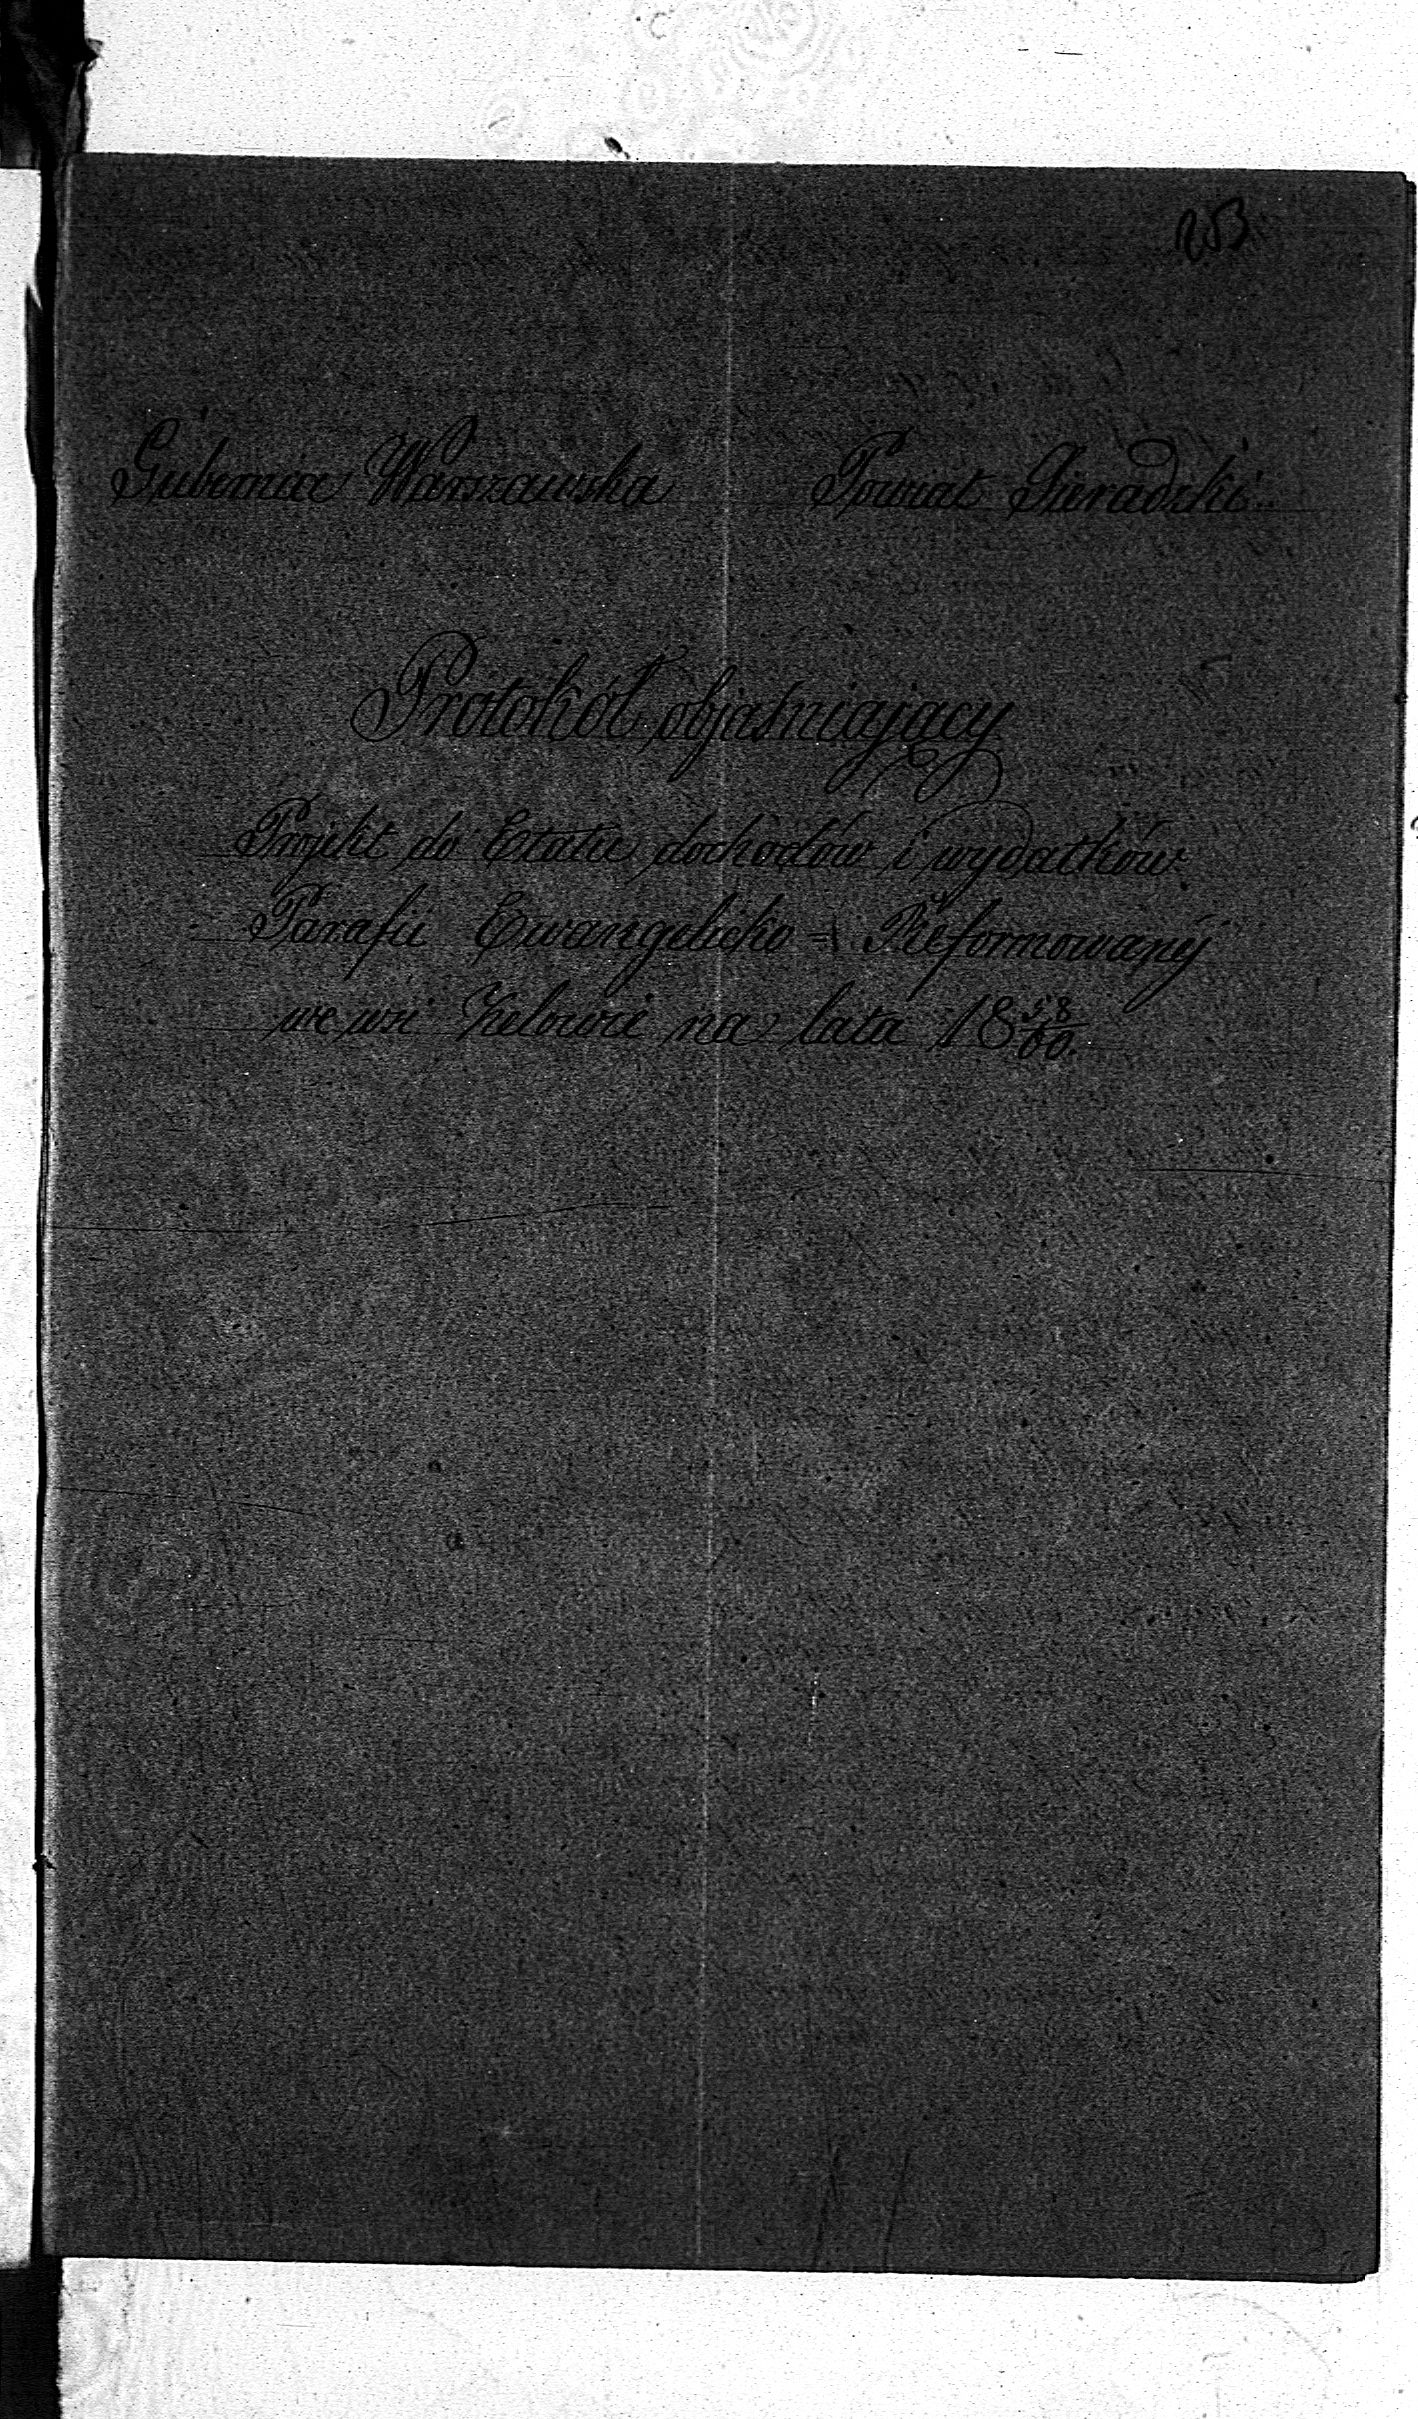 253
Gubernia Warszawska Powiat Sieradzki
Protokół objaśniający
Projekt do Etatu dochodów i wydatków
Parafii Ewangelicko = Reformowanej
we wsi Zelowie na lata 18 58/60.